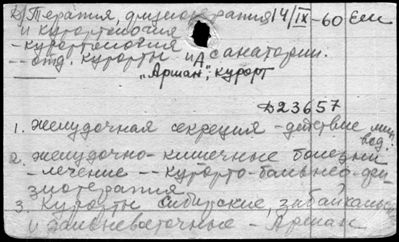 2) Терапия, физиотерапия 14/IX-60 Еш
и курортология
- курортология
-- отд. курорты и санатории.
"Аршан", курорт
Д23657
1. желудочная секреция - действие мин. вод.
2. желудочно-кишечные болезни
- лечение -- курорто-бальнео-фи-
зиотерапия.
3. Курорты Сибирские, забайкальские
и дальневосточные - Аршан